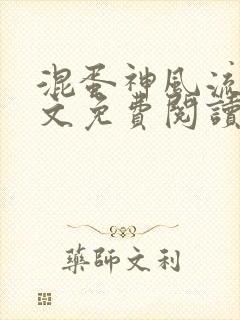 混蛋神風流
文免費閱讀
藥師文利